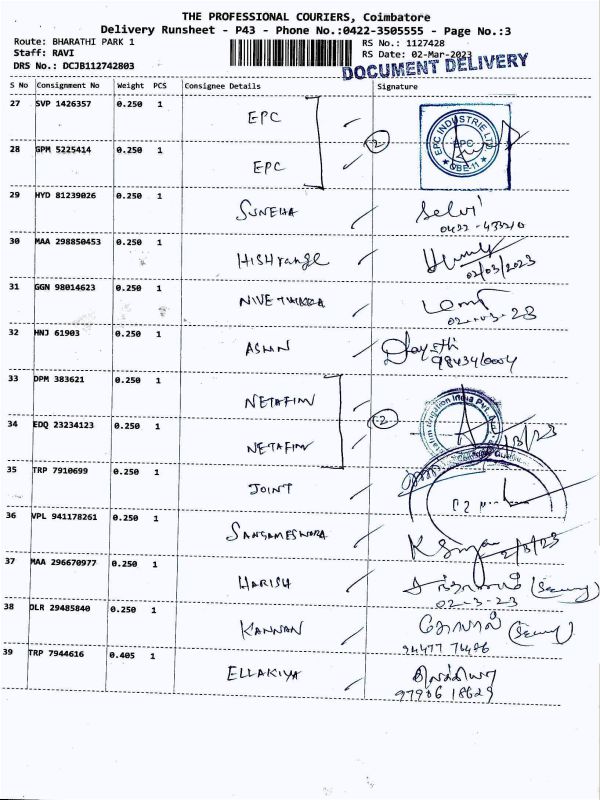 THE PROFESSIONAL COURIERS, Coimbatore
Delivery Runsheet - P43 - Phone No.:0422-3505555 - Page No.:3
Route: BHARATHI PARK 1 RS No.: 1127428
Staff: RAVI RS Date: 02-Mar-2023
DRS No.: DCJB112742803 DOCUMENT DELIVERY
S No Consignment No Weight PCS Consignee Details Signature
27 SVP 1426357 0.250 1 EPC
EPC INDUSTRIE LTD
EPC
28 GPM 5225414 0.250 1 EPC
29 HYD 81239026 0.250 1 SUNEHA Selvi
0422-433210
30 MAA 298850453 0.250 1 HISHrange
02/03/2023
31 GGN 98014623 0.250 1
32 HNJ 61903 0.250 1
33 DPM 383621 0.250 1 NETAFIM
34 EDQ 23234123 0.250 1 NETAFIM
35 TRP 7910699 0.250 1 JOINT
36 VPL 941178261 0.250 1 SANGAMESWORA
37 MAA 296670977 0.250 1 HARISH
02-3-23
38 DLR 29485840 0.250 1 KANNAN
39 TRP 7944616 0.405 1 ELLAKIYA
97906 18629